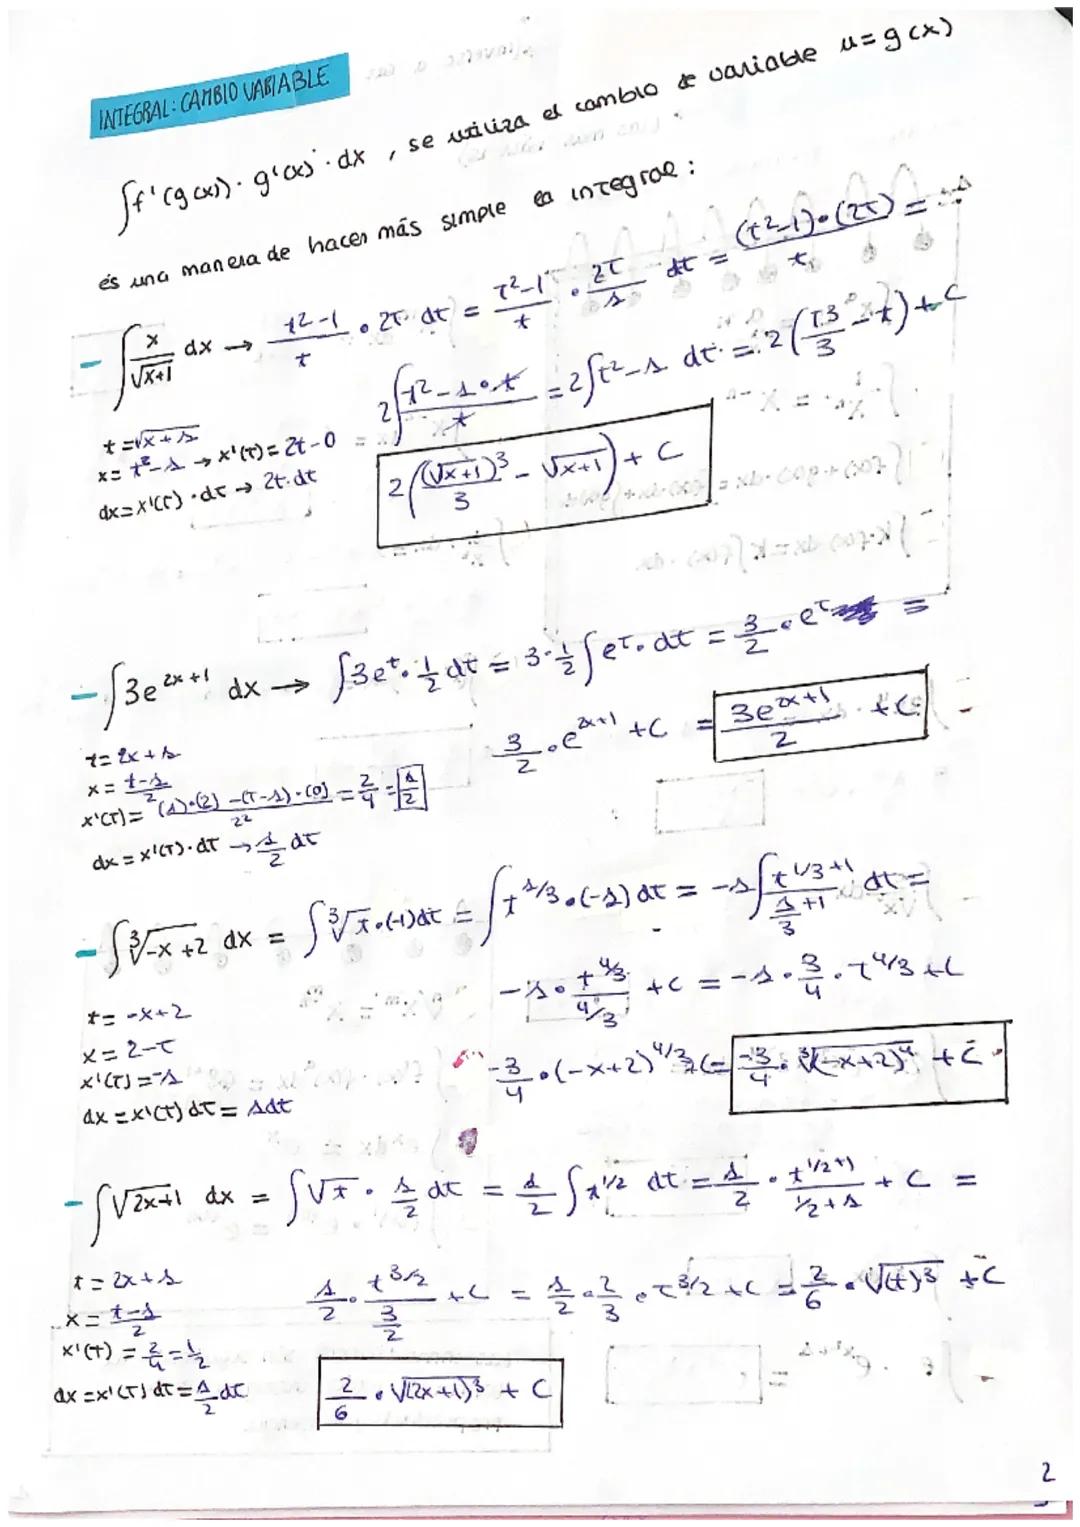 INTEGRAL: CAMBIO VARIABLE
∫f'(g(x))· g'(x)· dx , se utiliza el cambio de variable u=g(x)
és una manera de hacer más simple la integral :
- ∫ x/√x+1 dx → t²-1/t · 2t· dt = t²-1/t · 2t/1 dt = (t²-1)·(2t)/t =
2∫ t²-1·t/t = 2∫t²-1 dt = 2(t³/3 - t) + C
t=√x+1
x= t²-1 → x'(t)= 2t-0
dx=x'(t)·dt → 2t·dt
2((√x+1)³/3 - √x+1) + C
- ∫3e^2x+1 dx → ∫3e^t · 1/2 dt = 3·1/2 ∫e^t· dt = 3/2 · e^t =
3/2 · e^2x+1 + C = 3e^2x+1/2 + C
t= 2x+1
x= t-1/2
x'(t)= (1)·(2)-(t-1)·(0)/2² = 2/4 = 1/2
dx = x'(t)·dt → 1/2 dt
- ∫∛-x+2 dx = ∫∛t·(-1)dt = ∫t^1/3·(-1)dt = -1∫ t^1/3+1/1/3+1 dt =
-1· t^4/3/4/3 + C = -1· 3/4 · t^4/3 + C
t= -x+2
x= 2-t
x'(t)=-1
dx =x'(t) dt= 1dt
-3/4 ·(-x+2)^4/3 = -3/4 · ∛(-x+2)⁴ + C
- ∫√2x+1 dx = ∫√t · 1/2 dt = 1/2 ∫t^1/2 dt = 1/2 · t^1/2+1/1/2+1 + C =
1/2 · t^3/2/3/2 + C = 1/2 · 2/3 · t^3/2 + C = 2/6 · √(t)³ + C
t= 2x+1
x= t-1/2
x'(t) = 2/4 = 1/2
dx =x'(t) dt= 1/2 dt
2/6 · √(2x+1)³ + C
2